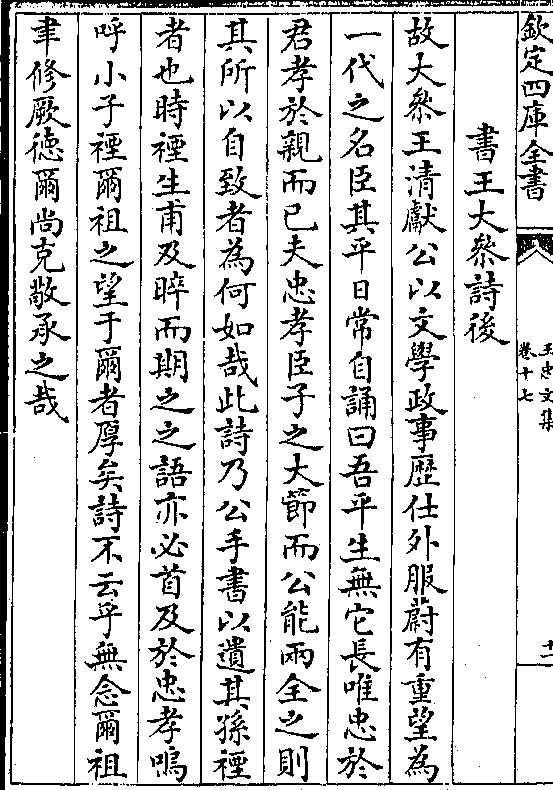 欽定四庫全書
王忠文集
卷十七
十一
書王大叅詩後
故大叅王清獻公以文學政事歴仕外服蔚有重望為
一代之名臣其平日常自誦曰吾平生無它長唯忠於
君孝於親而已夫忠孝臣子之大節而公能兩全之則
其所以自致者為何如哉此詩乃公手書以遺其孫禋
者也時禋生甫及晬而期之之語亦必首及於忠孝嗚
呼小子禋爾祖之望于爾者厚矣詩不云乎無念爾祖
聿修厥徳爾尚克敬承之哉